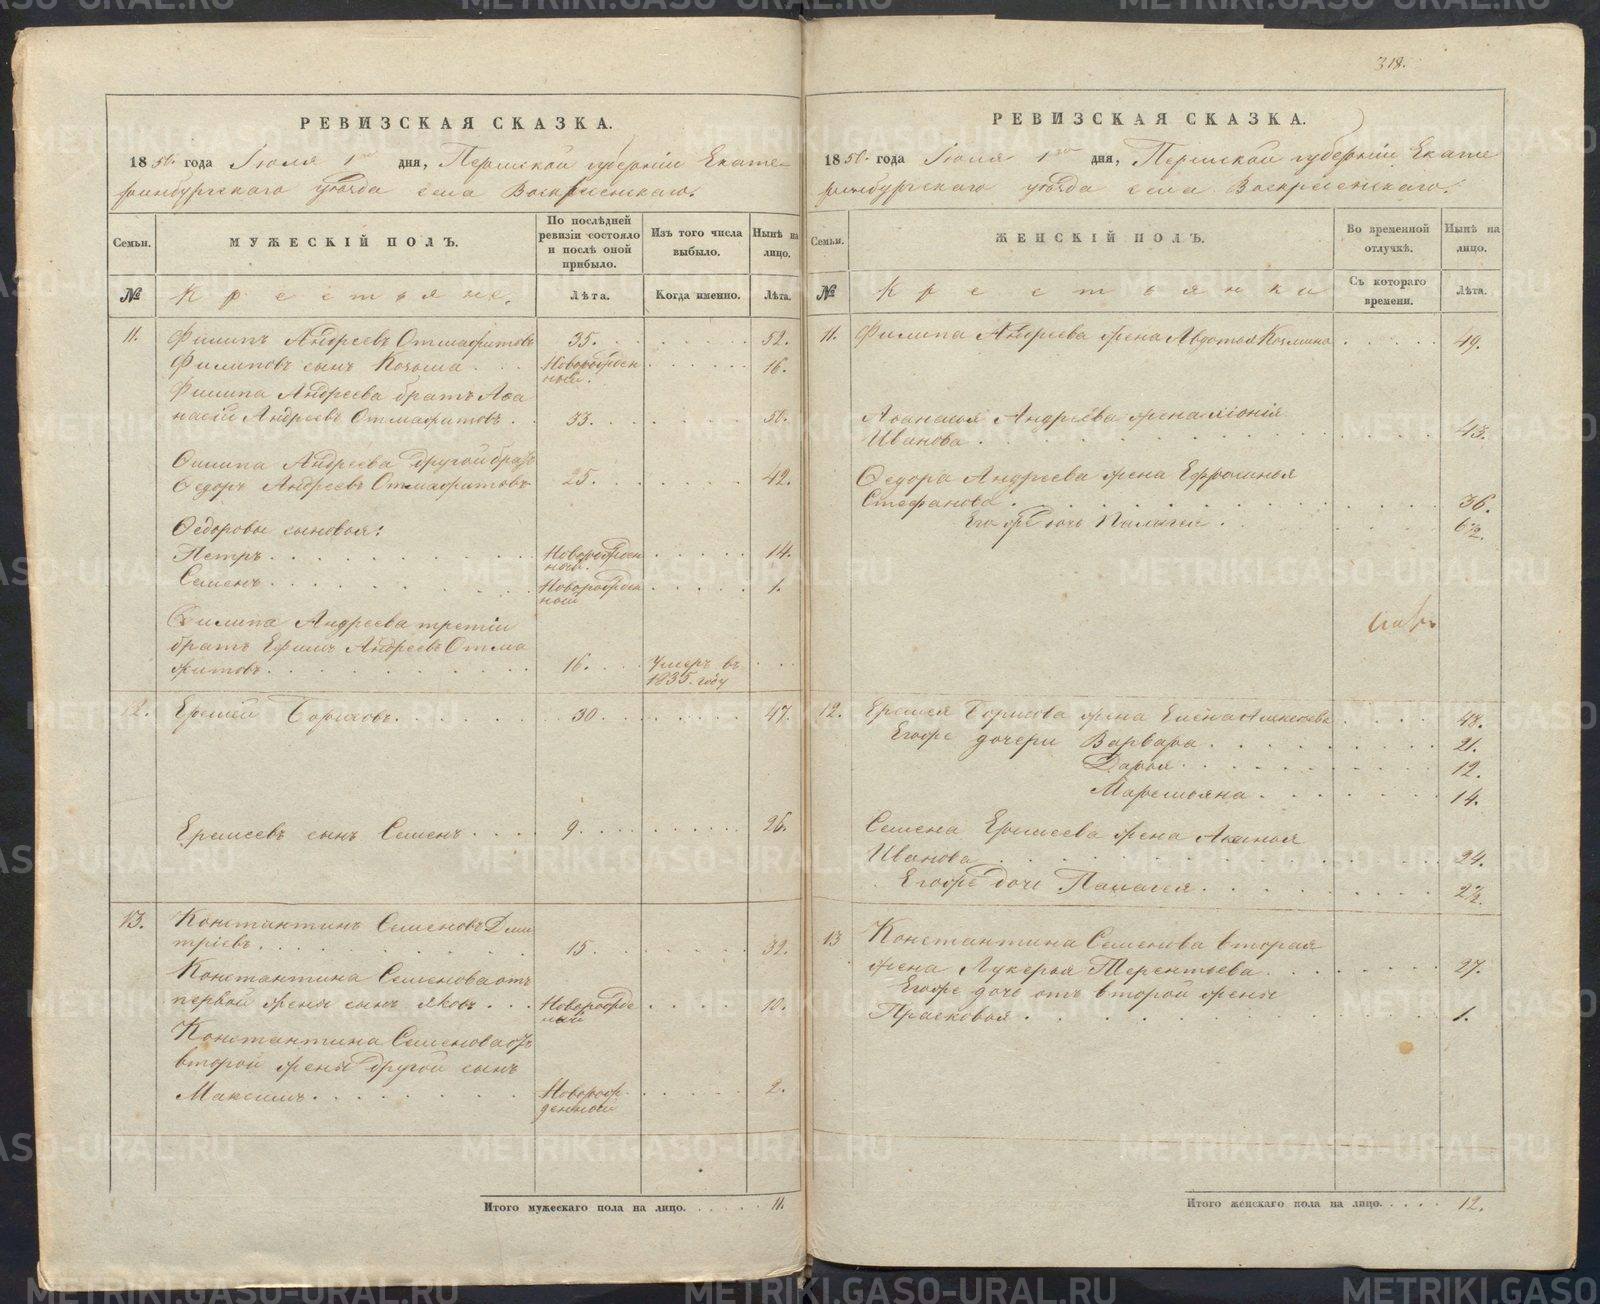 РЕВИЗСКАЯ СКАЗКА.
1850. года Іюля 1го дня, Пермской губерніи Екате-
ринбургскаго уѣзда села Воскресенскаго.
Семьи.
МУЖЕСКІЙ ПОЛЪ.
По послѣдней ревизіи состояло и послѣ оной прибыло.
Изъ того числа выбыло.
Нынѣ на лицо.
№
Крестьяне.
Лѣта.
Когда именно.
Лѣта.
11. Филипъ Андреевъ 35. 52.
Филиповъ сынъ Козьма Новорожденный. 16.
Филипа Андреева братъ Афа
насій Андреевъ 33. 50.
Филипа Андреева другой братъ
Ѳедоръ Андреевъ 25. 42.
Ѳедоровы сыновья:
Петръ. Новорожденный. 14.
Семенъ. Новорожденный 1.
Филипа Андреева третій
братъ Ефимъ Андреевъ
16. Умеръ въ 1835. году
12. Еремей Борисовъ. 30. 47.
Еремеевъ сынъ Семенъ. 9. 26.
13. Константинъ Семеновъ Дми
тріевъ. 15. 32.
Константина Семенова отъ
первой жены сынъ Яковъ. Новорожденый 10.
Константина Семенова отъ
второй жены другой сынъ
Максимъ. Новорожденной 2.
Итого мужескаго пола на лицо. 11.
318.
РЕВИЗСКАЯ СКАЗКА.
1850. года Іюля 1го дня, Пермской губерніи Екате
ринбургскаго уѣзда села Воскресенскаго.
Семьи.
ЖЕНСКІЙ ПОЛЪ.
Во временной отлучкѣ.
Нынѣ на лицо.
№
Крестьянки
Съ котораго времени.
Лѣта.
11. Филипа Андреева жена Авдотья Козмина 49.
Афанасья Андреева жена
Иванова. 43.
Ѳедора Андреева жена Ефросинья
Стефанова. 36.
Его же дочь Палагея. 6½.
12. Еремея Борисова жена Елена Алексеева 48.
Его же дочери Варвара. 21.
Дарья. 12.
Маремьяна. 14.
Семена Еремеева жена
Иванова. 24.
Его же дочь Палагея. 2½.
13 Константина Семенова вторая
жена Лукерья Терентьева. 27.
Его же дочь отъ второй жены
Прасковья. 1.
Итого женскаго пола на лицо. 12.
METRIKI.GASO-URAL.RU